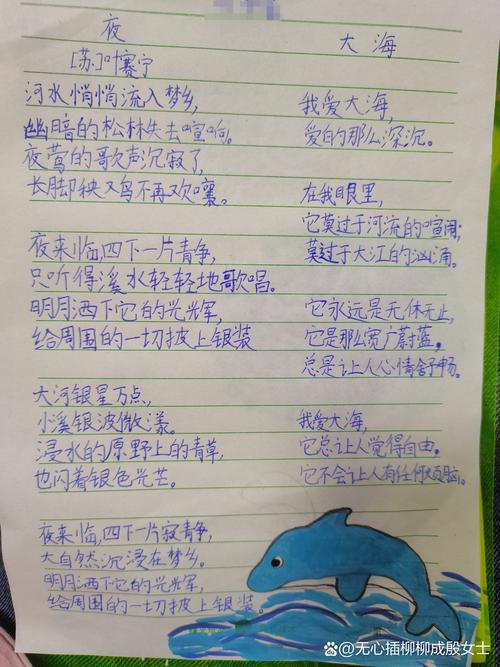 夜
[苏]叶赛宁
河水悄悄流入梦乡,
幽暗的松林失去喧响。
夜莺的歌声沉寂了,
长脚秧鸟不再欢嚷。
夜来临,四下一片青争,
只听得溪水轻轻地歌唱。
明月洒下它的光辉,
给周围的一切披上银装
大河银星万点,
小溪银波微漾。
浸水的原野上的青草,
也闪着银色光芒。
夜来临,四下一片寂静,
大自然沉浸在梦乡。
明月洒下它的光辉,
给周围的一切披上银装。
大海
我爱大海,
爱的那么深沉。
在我眼里,
它莫过于河流的喧闹;
莫过于大江的汹涌。
它永远是无休无止,
它是那么宽广蔚蓝。
总是让人心情舒畅。
我爱大海,
它总让人觉得自由。
它不会让人有任何烦脑。
@无心插柳柳成殷女士